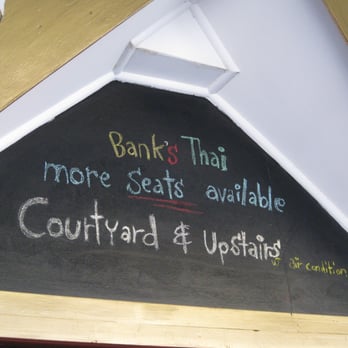 Bank's Thai
more Seats available
Courtyard & Upstairs
air condition